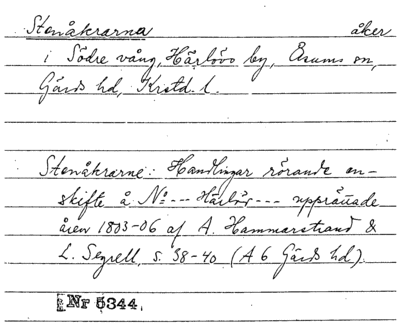 Stenåkrarna åker
i Södre vång, Härlövs by, Everöds sn,
Gärds hd, Krstd. l.
Stenåkrarne: Handlingar rörande en-
skifte å No --- Härlöv --- upprättade
åren 1803-06 af A. Hammarstrand &
L. Segrell, s. 38-40 (A 6 Gärds hd.).
Nr 5344.